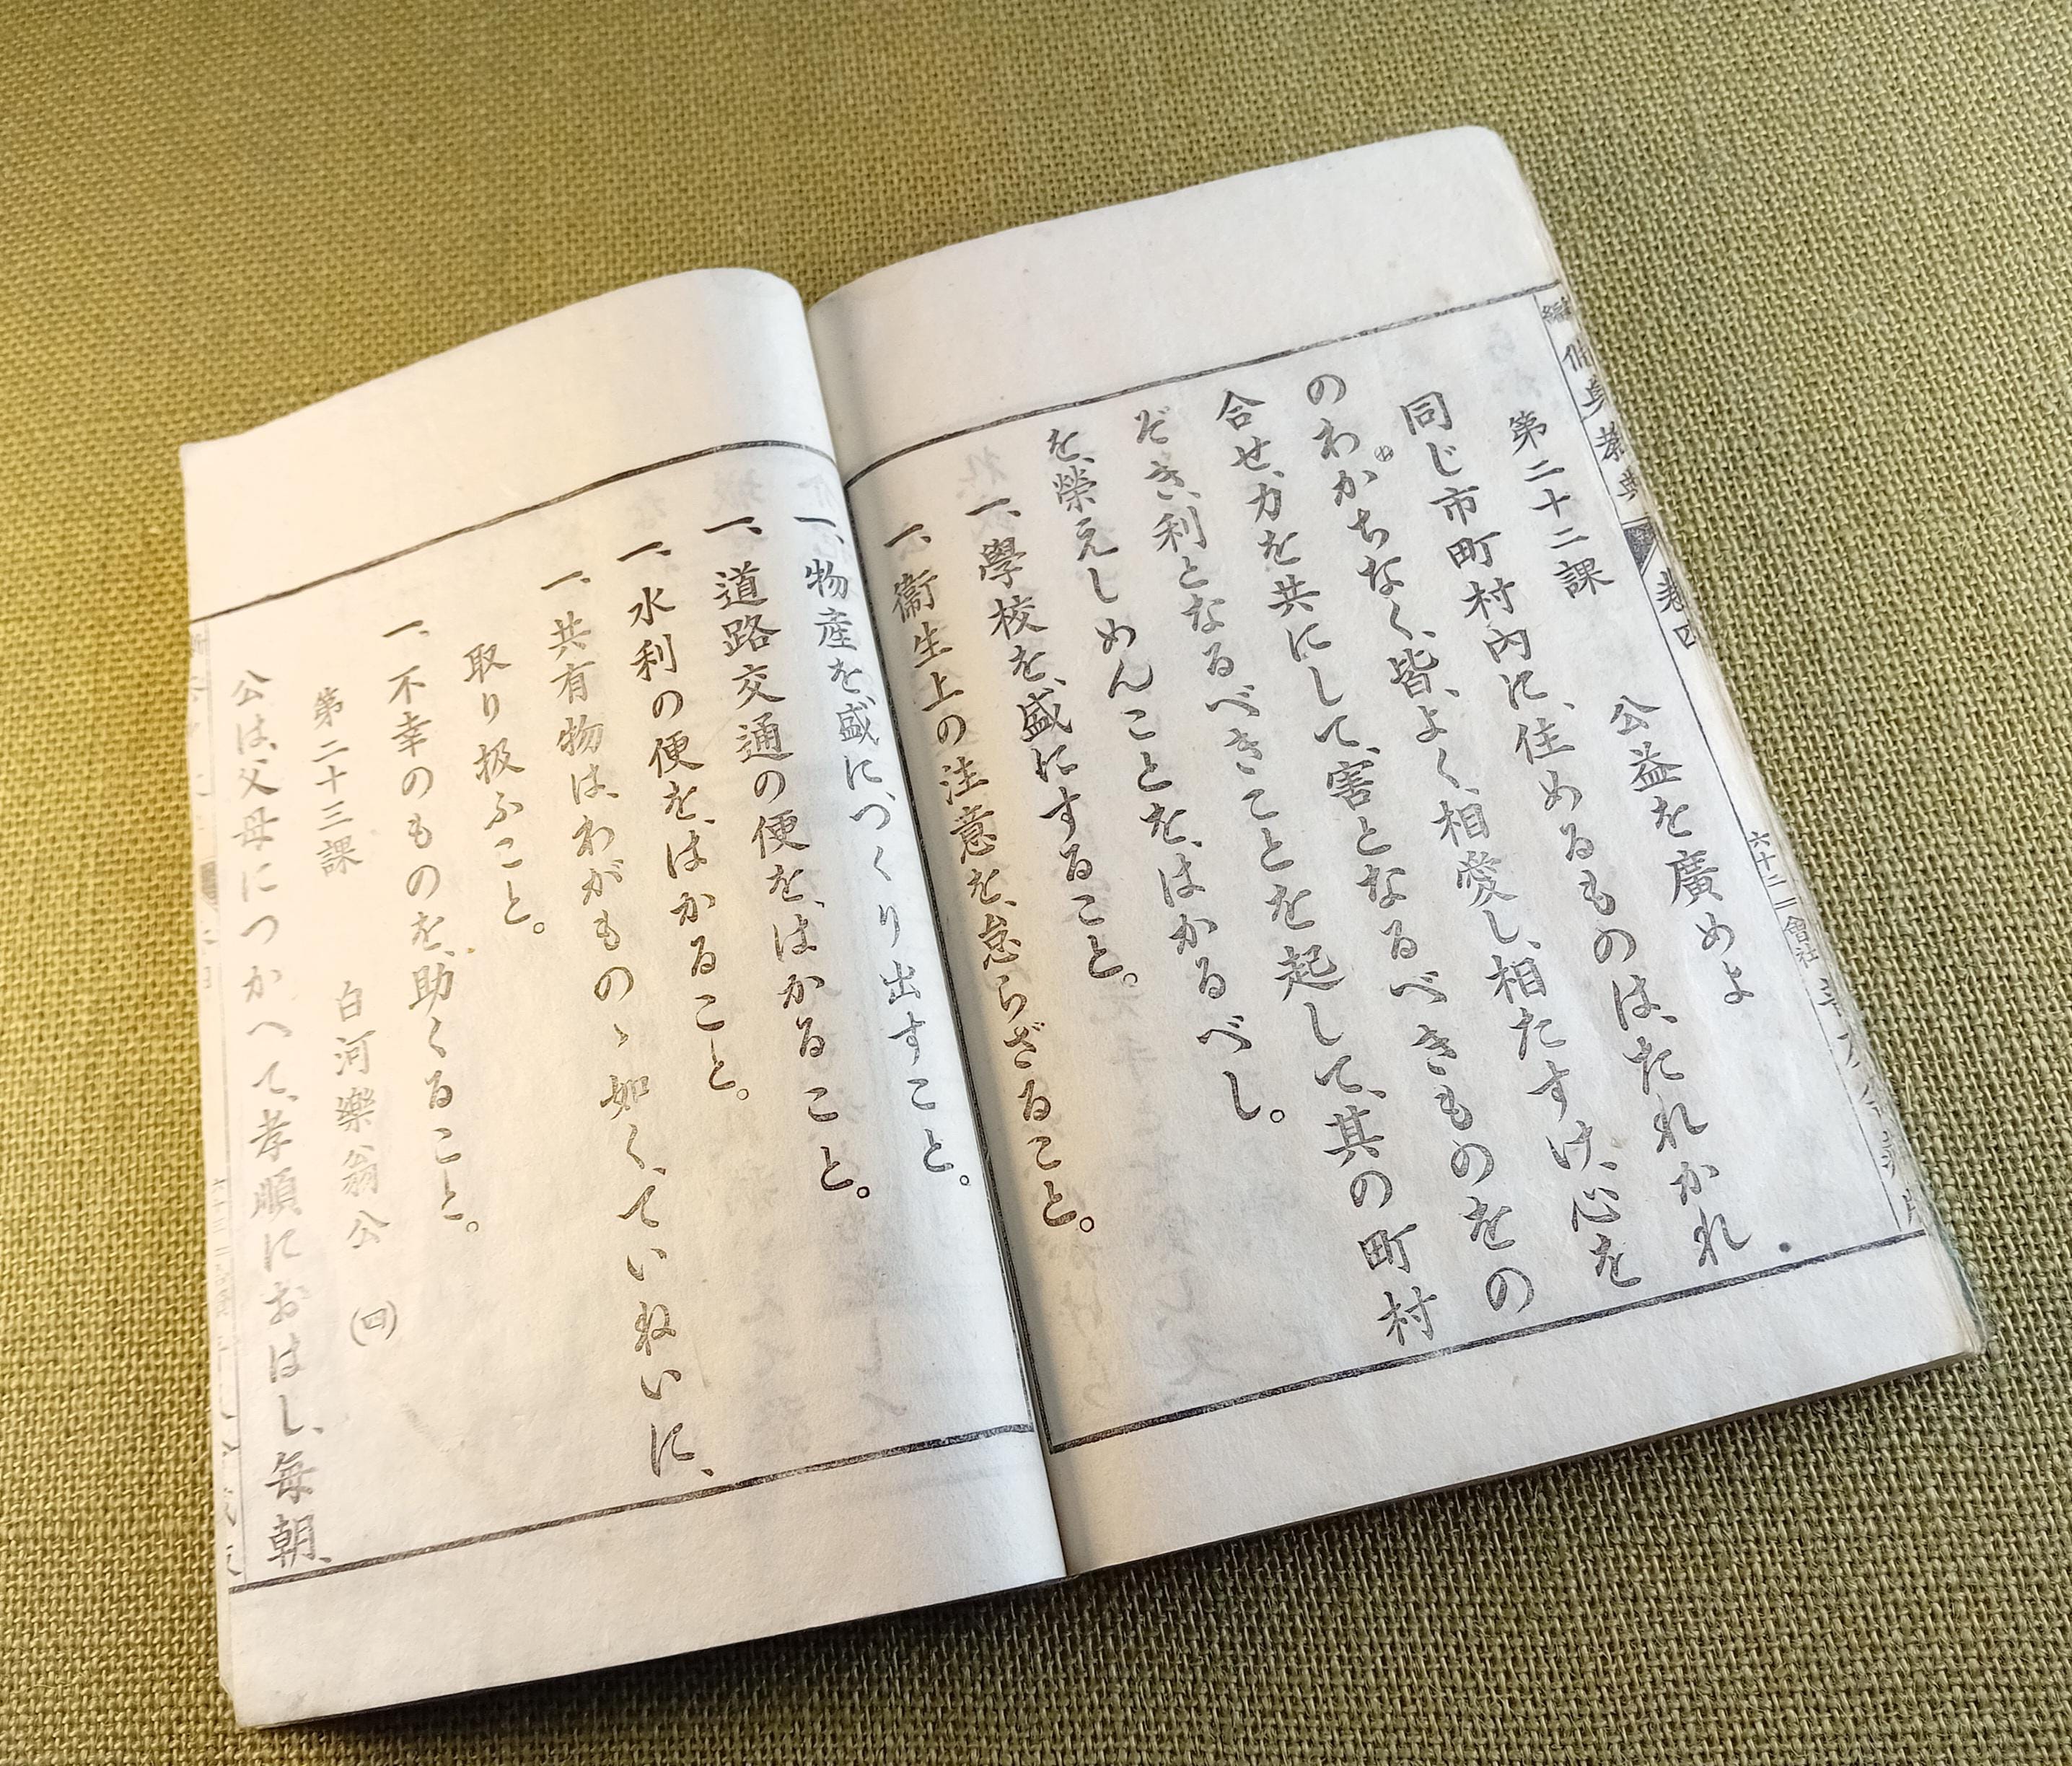 修身教典
卷四
六十二
會社
第二十二課　公益を廣めよ
同じ市町村內に、住めるものは、たれかれ
のわかちなく、皆、よく、相愛し、相たすけ、心を
合せ、力を共にして、害となるべきものをの
ぞき、利となるべきことを起して、其の町村
を、榮えしめんことを、はかるべし。
一、學校を、盛にすること。
一、衞生上の注意を、怠らざること。
一、物産を、盛に、つくり出すこと。
一、道路交通の便を、はかること。
一、水利の便を、はかること。
一、共有物は、わがものゝ如く、ていねいに、
取り扱ふこと。
一、不幸のものを、助くること。
第二十三課　白河樂翁公　(四)
公は、父母につかへて、孝順におはし、每朝、